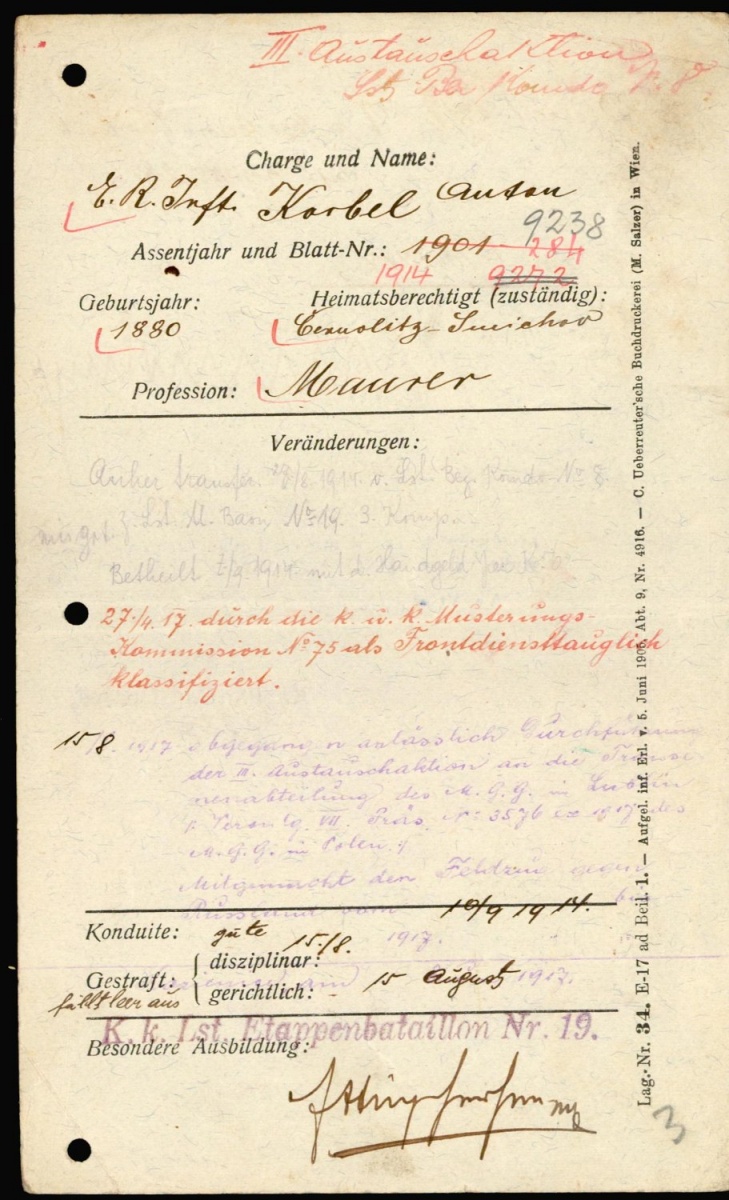 III. Austauschaktion
Lst Bez Komdo N. 8
Charge und Name:
E. R. Inft. Korbel Anton
9238
Assentjahr und Blatt-Nr.: 1901 284
1914 9272
Geburtsjahr: Heimatsberechtigt (zuständig):
1880 Černolitz - Smichov
Profession: Maurer
Veränderungen:
Anher transfer. 28/8 1914 v. Lst. Bez. Komdo No 8.
z. Lst. M. Baon No 19. 3. Komp.
Betheilt 1/9 1914 mit Handgeld
27./4. 17. durch die k. u. k. Musterungs-
Kommission No 75 als Frontdiensttauglich
klassifiziert.
15/8. 1917 abgegangen anlässlich Durchführung
der III. Austauschaktion an die
des M. G. G. in Lublin
VII. Präs. No 3576 ex 1917 des
M. G. G. in Polen
Mitgemacht den Feldzug gegen
Russland vom 10/9 1914. bis
Konduite: gute 15./8. 1917.
Gestraft: disziplinar:
fällt leer aus gerichtlich: am 15 August 1917.
K. k. Lst. Etappenbataillon Nr. 19.
Besondere Ausbildung:
3
Lag.-Nr. 34. E-17 ad Beil. 1. — Aufgel. inf. Erl. v. 5. Juni 1906, Abt. 9, Nr. 4916. — C. Ueberreuter'sche Buchdruckerei (M. Salzer) in Wien.